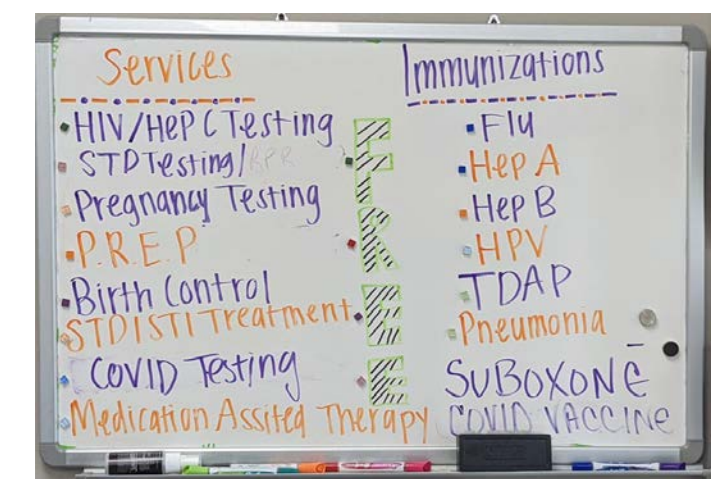 Services
HIV/HeP C Testing
STD Testing/RPR
Pregnancy Testing
P.R.E.P
Birth Control
STD/STI Treatment
COVID Testing
Medication Assited Therapy
FREE
Immunizations
Flu
Hep A
Hep B
HPV
TDAP
Pneumonia
SUBOXONE
COVID VACCINE